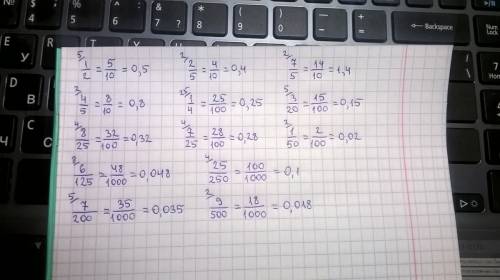 5/ 1/2 = 5/10 = 0,5    2/ 2/5 = 4/10 = 0,4    2/ 7/5 = 14/10 = 1,4
2/ 4/5 = 8/10 = 0,8    25/ 1/4 = 25/100 = 0,25    5/ 3/20 = 15/100 = 0,15
4/ 8/25 = 32/100 = 0,32    4/ 7/25 = 28/100 = 0,28    2/ 1/50 = 2/100 = 0,02
8/ 6/125 = 48/1000 = 0,048    4/ 25/250 = 100/1000 = 0,1
5/ 7/200 = 35/1000 = 0,035    2/ 9/500 = 18/1000 = 0,018
Backspace